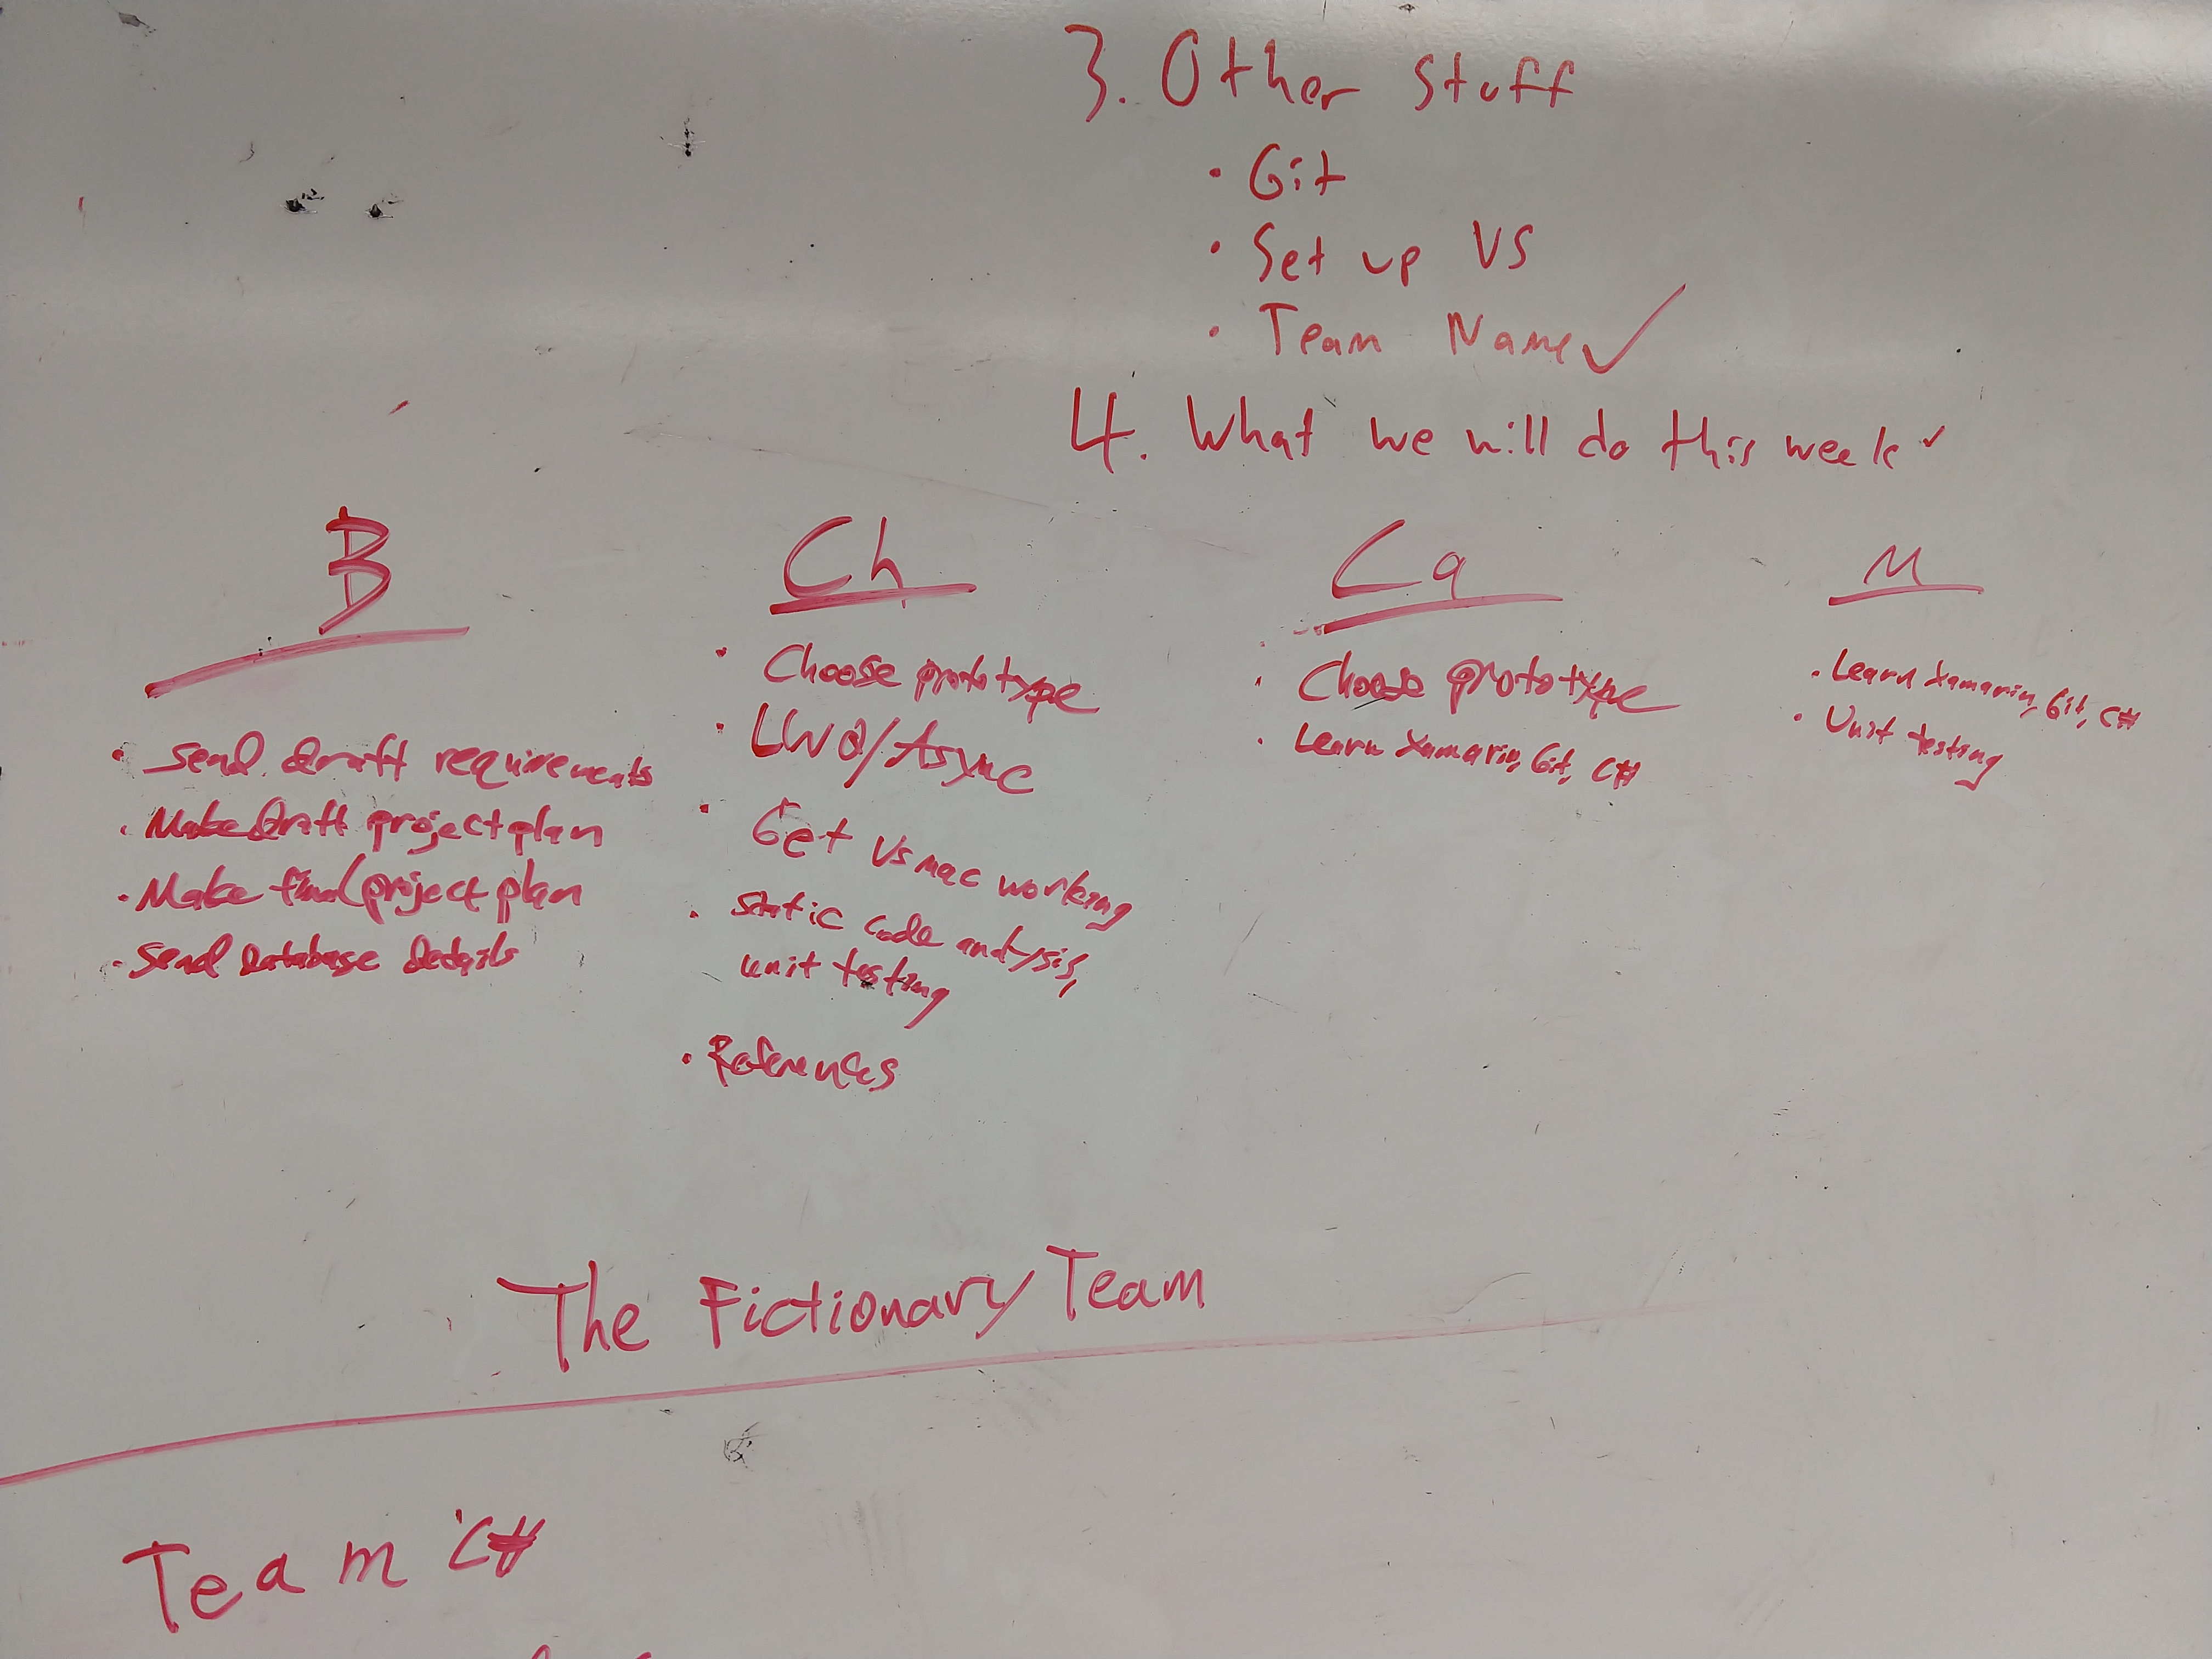 3. Other Stuff
• Git
• Set up VS
• Team Name ✓
4. What we will do this week ✓
B
• Send draft requirements
• Make draft project plan
• Make final project plan
• Send Database Details
Ch
• Choose prototype
• /Async
• Get Vs mac working
• Static code analysis,
unit testing
• References
Ca
• Choose prototype
• Learn Xamarin, Git, C#
M
• Learn Xamarin, Git, C#
• Unit testing
The Fictionary Team
Team C#